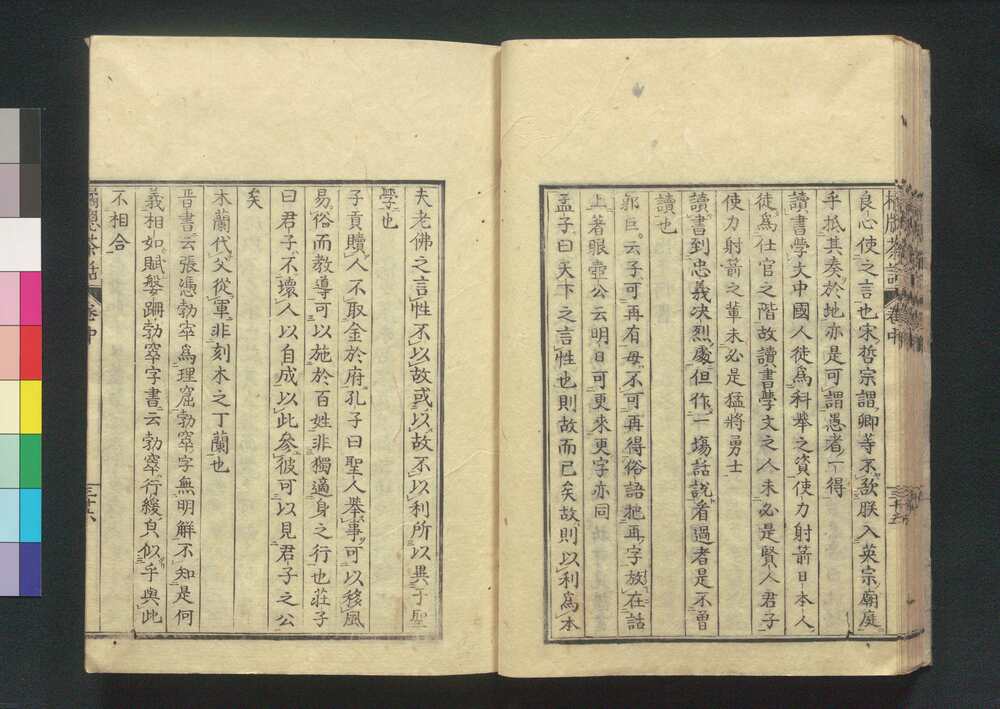 橘牕茶話 卷中 三十五
良心使之言也宋哲宗謂卿等不欲朕入英宗廟庭
乎抵其奏於地亦是可謂愚者一得
讀書學文中國人徒爲科擧之資使力射箭日本人
徒爲仕官之階故讀書學文之人未必是賢人君子
使力射箭之輩未必是猛將勇士
讀書到忠義决烈處但作一塲話說看過者是不曾
讀也
郭巨云子可再有母不可再得俗語把再字放在話
上著眼壺公云明日可更來更字亦同
孟子曰天下之言性也則故而已矣故則以利爲本
夫老佛之言性不以故或以故不以利所以異于聖
學也
子貢贖人不取金於府孔子曰聖人擧事可以移風
易俗而教導可以施於百姓非獨適身之行也莊子
曰君子不壞人以自成以此參彼可以見君子之公
矣
木蘭代父從軍非刻木之丁蘭也
晋書云張憑勃窣爲理窟勃窣字無明解不知是何
義相如賦媻跚勃窣字書云勃窣行緩皃似乎與此
不相合
橘牕茶話 卷中 三十六